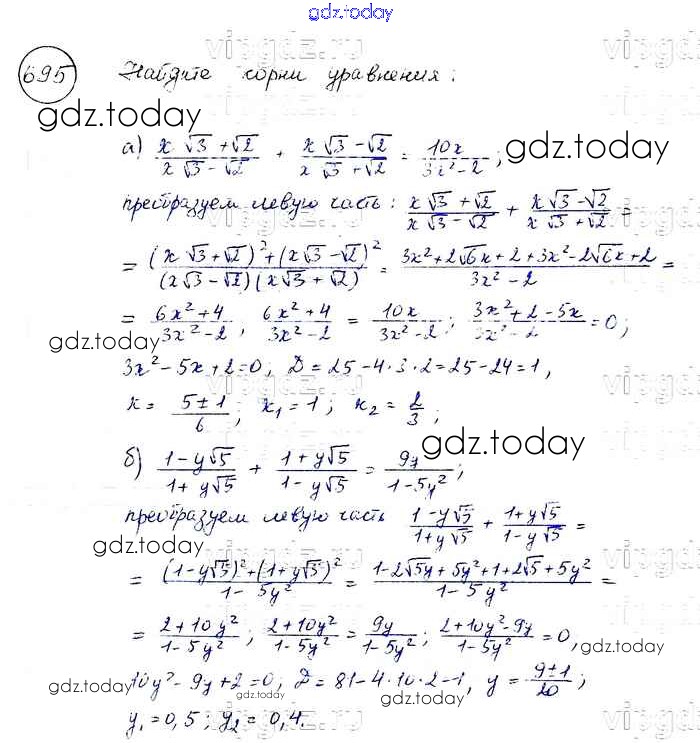 gdz.today
695 Найдите корни уравнения:
а) (x√3+√2)/(x√3-√2) + (x√3-√2)/(x√3+√2) = 10x/(3x²-2);
преобразуем левую часть: (x√3+√2)/(x√3-√2) + (x√3-√2)/(x√3+√2) =
= ((x√3+√2)²+(x√3-√2)²)/((x√3-√2)(x√3+√2)) = (3x²+2√6x+2+3x²-2√6x+2)/(3x²-2) =
= (6x²+4)/(3x²-2), (6x²+4)/(3x²-2) = 10x/(3x²-2); (3x²+2-5x)/(3x²-2) = 0;
3x²-5x+2=0; D=25-4·3·2=25-24=1,
x = (5±1)/6; x₁=1; x₂=2/3;
б) (1-y√5)/(1+y√5) + (1+y√5)/(1-y√5) = 9y/(1-5y²);
преобразуем левую часть (1-y√5)/(1+y√5) + (1+y√5)/(1-y√5) =
= ((1-y√5)²+(1+y√5)²)/(1-5y²) = (1-2√5y+5y²+1+2√5+5y²)/(1-5y²) =
= (2+10y²)/(1-5y²); (2+10y²)/(1-5y²) = 9y/(1-5y²); (2+10y²-9y)/(1-5y²) = 0,
10y²-9y+2=0; D=81-4·10·2-1, y = (9±1)/20;
y₁=0,5; y₂=0,4.